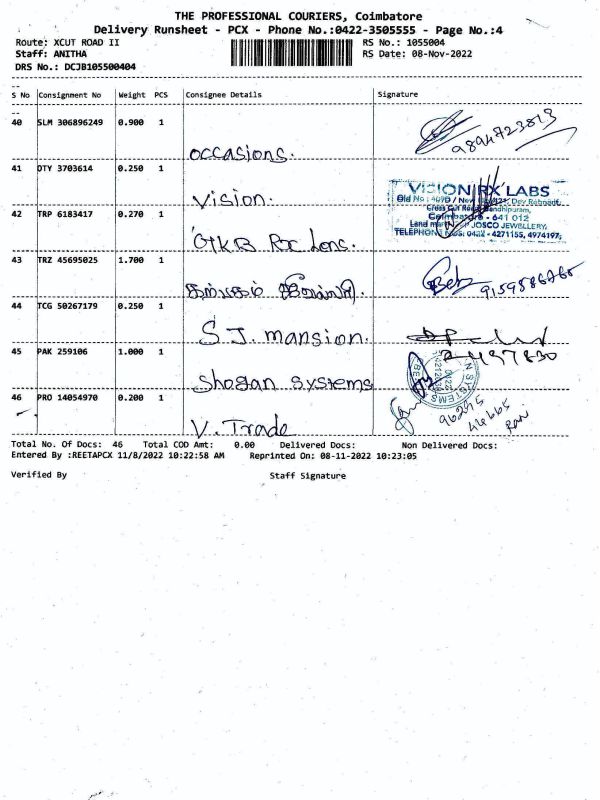 THE PROFESSIONAL COURIERS, Coimbatore
Delivery Runsheet - PCX - Phone No.:0422-3505555 - Page No.:4
Route: XCUT ROAD II RS No.: 1055004
Staff: ANITHA RS Date: 08-Nov-2022
DRS No.: DCJB105500404
S No Consignment No Weight PCS Consignee Details Signature
40 SLM 306896249 0.900 1
occasions. 9894723813
41 DTY 3703614 0.250 1
vision.
VISION RX LABS
42 TRP 6183417 0.270 1
Coimbatore - 641 012
JOSCO JEWELLERY,
0422 - 4271155, 4974197,
GKB Rx Lens.
43 TRZ 45695025 1.700 1
9159586765
44 TCG 50267179 0.250 1
S.J. mansion.
45 PAK 259106 1.000 1
Shogan systems
46 PRO 14054970 0.200 1
96295
44665
Ravi
V. Trade
Total No. Of Docs: 46 Total COD Amt: 0.00 Delivered Docs: Non Delivered Docs:
Entered By :REETAPCX 11/8/2022 10:22:58 AM Reprinted On: 08-11-2022 10:23:05
Verified By Staff Signature